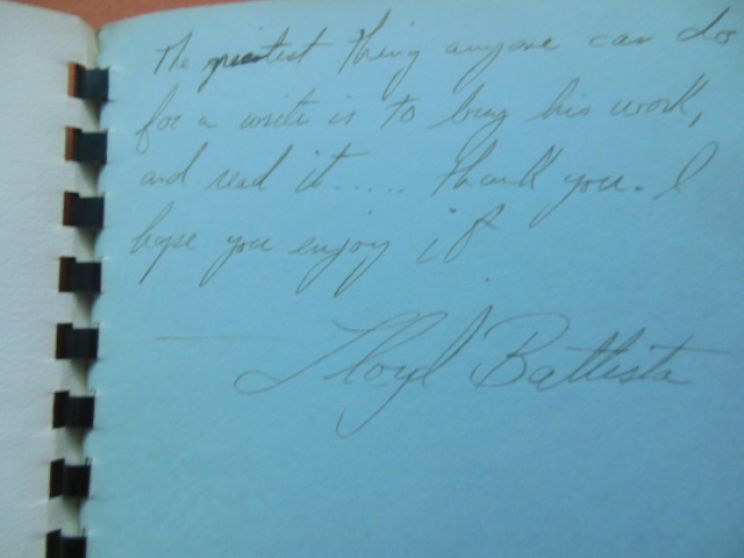 The greatest thing anyone can do
for a write is to buy his work,
and read it..... Thank you. I
hope you enjoy it
Lloyd Battista